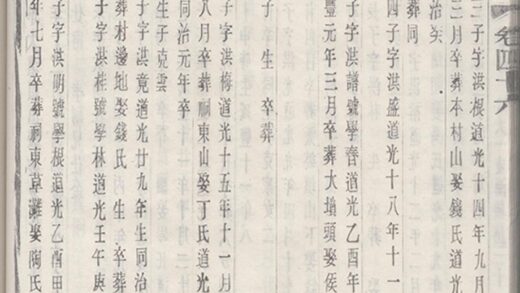 卷四十六
三子字洪根道光十四年九月
三月卒葬本村山娶錢氏道光
治癸
葬同
四子字洪盛道光十八年十一
子字洪譜號學春道光乙酉年
豐元年三月卒葬大墳頭娶侯
子字　生　卒　葬
子字洪梅道光十五年十一月
八月卒葬祠東山娶丁氏道光
同治元年卒
生子克雲
子字洪竟道光廿九年生同治
葬村邊地娶錢氏　生　卒葬
子字洪桂號學林道光壬午庚
子字洪明號學根道光乙酉甲
年七月卒葬祠東草灘娶陶氏